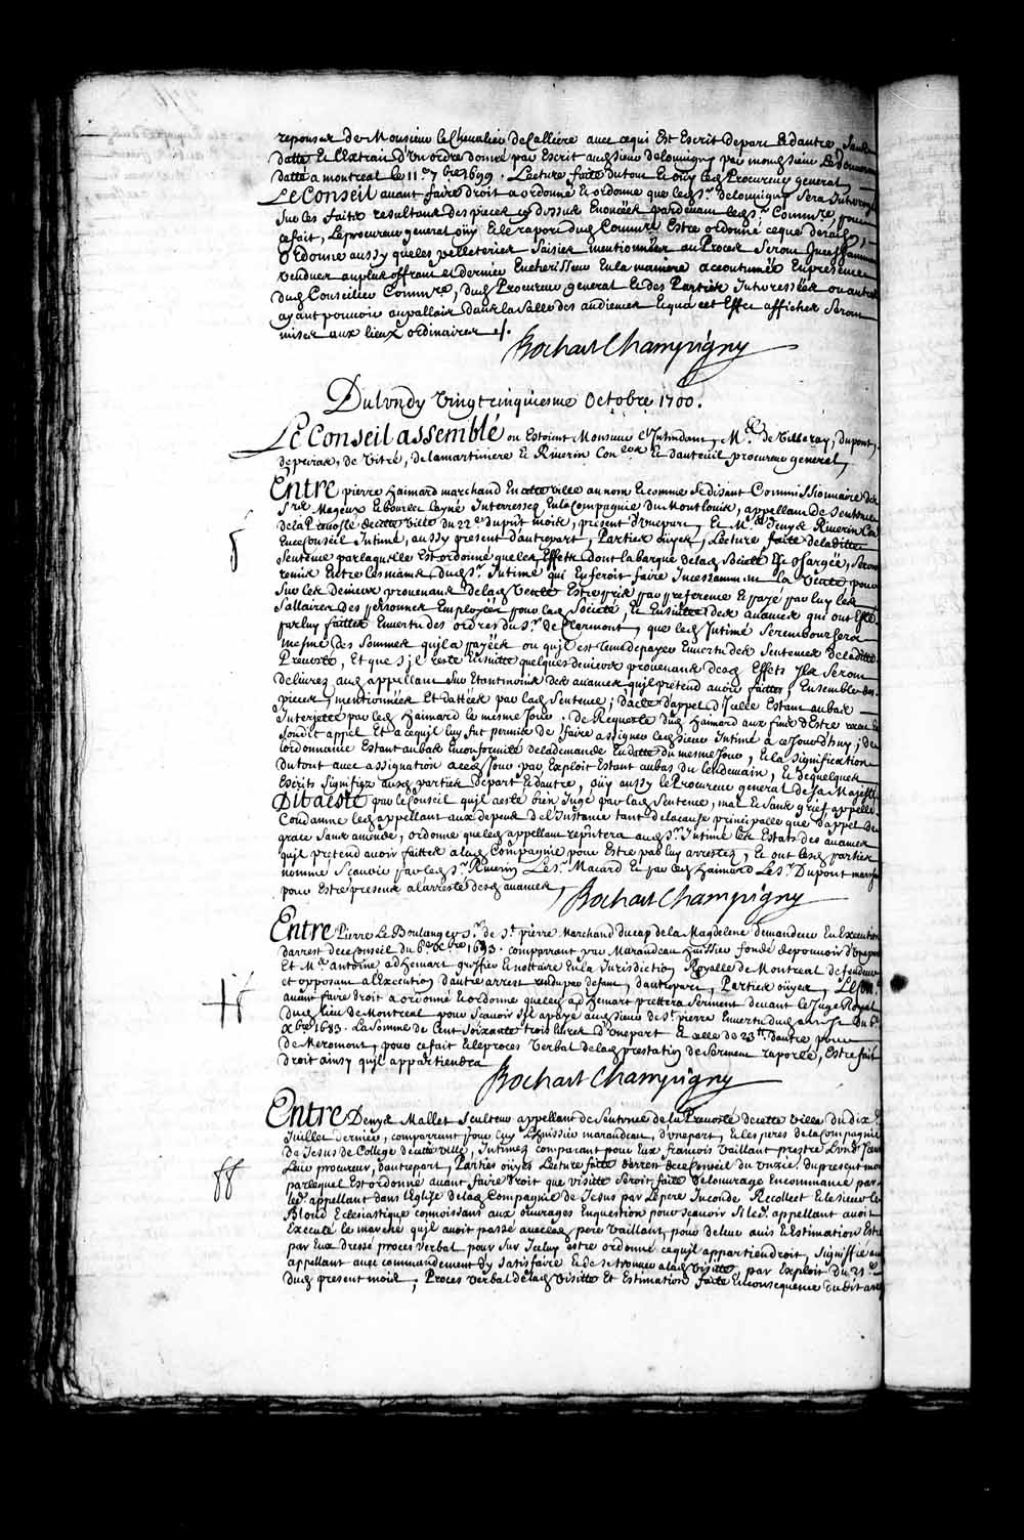 reponses de Monsieur le Chevalier de Calliere avec ce qui Est Escrit de part Et dautre, Sans
datte Et lExtrait d'un ordre donné par Escrit aud sieur de Louvigny par mond sieur Le Gouverneur
datté a montreal le 11.e 7bre 1699. Lecture faite du tout Et oüy led Procureur general,
Le Conseil avant faire droit a ordonné Et ordonne que led S.r de louvigny Sera Interrogé
Sur les faits resultans des pieces cy dessus Enoncées pardevant led S.r Comm.re, pour
ce fait, Le procureur general oüy Et le raport dud Comm.re Estre ordonné ce que de raison,
Ordonne aussy que les pelleteries Saisies mentionnées au Procez Seront Incessamment
vendues au plus offrant et dernier Encherisseur En la maniere accoutumée En presence
dud Conseiller Comm.re, dud Procureur general Et des Parties Interessées ou autres
ayant pouvoir au pallais dans la Salle des audiences Et qu'a cet Effet affiches Seront
mises aux lieux ordinaires ./.
Bochart Champigny
Du lundy Vingt cinquiesme Octobre 1700.
Le Conseil assemblé ou Estoient Monsieur l'Intendant, M.es de Villeray, dupont,
depeiras, de Vitré, de lamartiniere Et Riverin Con.ers Et dauteuil procureur general,
Entre pierre haimard marchand En cette ville au nom Et comme Se disant Commissionnaire des
S.rs Majeux Et bourlet layné Interressez En la Compagnie du Mont louis, appellant de Sentence
de la Prevosté de cette ville du 22.e du pnt mois, present d'une part, Et M.e denys Riverin Con.er
En ce Conseil Intimé, aussy present d'autre part, Parties oüyes, Lecture faite de laditte
Sentence par laquelle Est ordonné que les Effets dont la barque de lad Societé Est chargée, Seront
remis Entre les mains dud S.r Intimé qui En feroit faire Incessamment la Vente pour
Sur les deniers provenans de lad Vente Estre pris par preference Et payé par luy les
Sallaires des personnes Employées pour lad Societé, Et Ensuitte des avances qui ont Esté
par luy faittes En vertu des ordres du S.r de Clermont, que led Intimé Se remboursera
mesme des Sommes qu'il a payées ou qu'il est tenu de payer En vertu des Sentences de laditte
Prevosté, Et que s'il reste Ensuitte quelques deniers provenans desd Effets Ils Seront
delivrez aud appellant Sur Et tant moins des avances qu'il prétend avoir faittes; Ensemble des
pieces mentionnées Et dattées par lad Sentence; d'acte d'appel d'Icelle Estant au bas
Interjetté par led haimard le mesme Jour. de Requeste dud haimard aux fins d'Estre receu
Sondit appel Et a ce qu'il luy fut permis de faire assigner led sieur Intimé a ce Jour d'huy; de
lordonnance Estant au bas En conformité de la demande En datte du mesme Jour, Et la Signification
du tout avec assignation a ced Jour par Exploit Estant au bas du lendemain, Et de quelques
Escrits Signifiez ausd parties de part Et dautre, oüy aussy le Procureur general de Sa Majesté,
Dit a esté par le Conseil qu'il a esté bien Jugé par lad Sentence, mal Et Sans grief appellé,
Condamne led appellant aux depens de l'Instance tant de la cause principalle que d'appel de
grace Sans amende, ordonne que led appellant representera aud S.r Intimé les Estats des avances
qu'il pretend avoir faittes a lad Compagnie pour Estre par luy arrestez, Et ont lesd parties
nommé Sçavoir par led S.r Riverin Le S.r Macard Et par led haimard Le S.r Dupont marchand
pour Estre presens a l'arresté desd avances,
Bochart Champigny
Entre Pierre Le Boulanger S.r de S.t pierre Marchand du cap de la Magdelene demandeur En Execution
darrest de ce Conseil du 6.e Xbre 1683. comparant par Marandeau huissier fondé de pouvoir d'une part
Et M.re antoine adhemart greffier Et nottaire En la Jurisdiction Royalle de Montreal deffendeur
et opposant a l'Execution dautre arrest rendu par defaut, d'autre part, Parties oüyes, Le Con.el
avant faire droit a ordonné Et ordonne que led adhemart prettera Serment devant le Juge Royal
dud lieu de Montreal pour Sçavoir s'il a payé aud sieur de S.t pierre En vertu dud arrest du 6.e
Xbre 1683. La Somme de Cent Soixante trois livres d'une part Et celle de 23.tt d'autre pour
de Meromont, pour ce fait Et le procez Verbal de lad prestation de Serment raporté, Estre fait
droit ainsy qu'il appartiendra
Bochart Champigny
Entre Denys Mallet Sculteur appellant de Sentence de la Prevosté de cette ville du dix
Juillet dernier, comparant pour luy l'huissier marandeau, d'une part, Et les peres de la Compagnie
de Jesus du College de cette ville, Intimez comparant pour Eux francois Vaillant prestre
Leur procureur, d'autre part, Parties oüyes Lecture faitte d'arrest de ce Conseil du onze du present mois
par lequel Est ordonné avant faire droit que visitte Seroit faite de l'ouvrage En commencé par
led. appellant dans l'Eglise de lad Compagnie de Jesus par Le pere Juconde Recollect Et le sieur Le
Blond Eclesiastique connoissans aux ouvrages En question pour sçavoir Si led. appellant avoit
Executé le marché qu'il avoit passé avec led pere Vaillant, pour de leur avis Et Estimation Estre
par Eux dressé procez verbal pour Sur Iceluy estre ordonné ce qu'il appartiendroit, Signiffié aud
appellant avec commandement d'y Satisfaire Et de Se trouver a lad Visitte par Exploit du 21.e
dud present mois, Procez verbal de lad Visitte Et Estimation faite En consequence dudit arrest